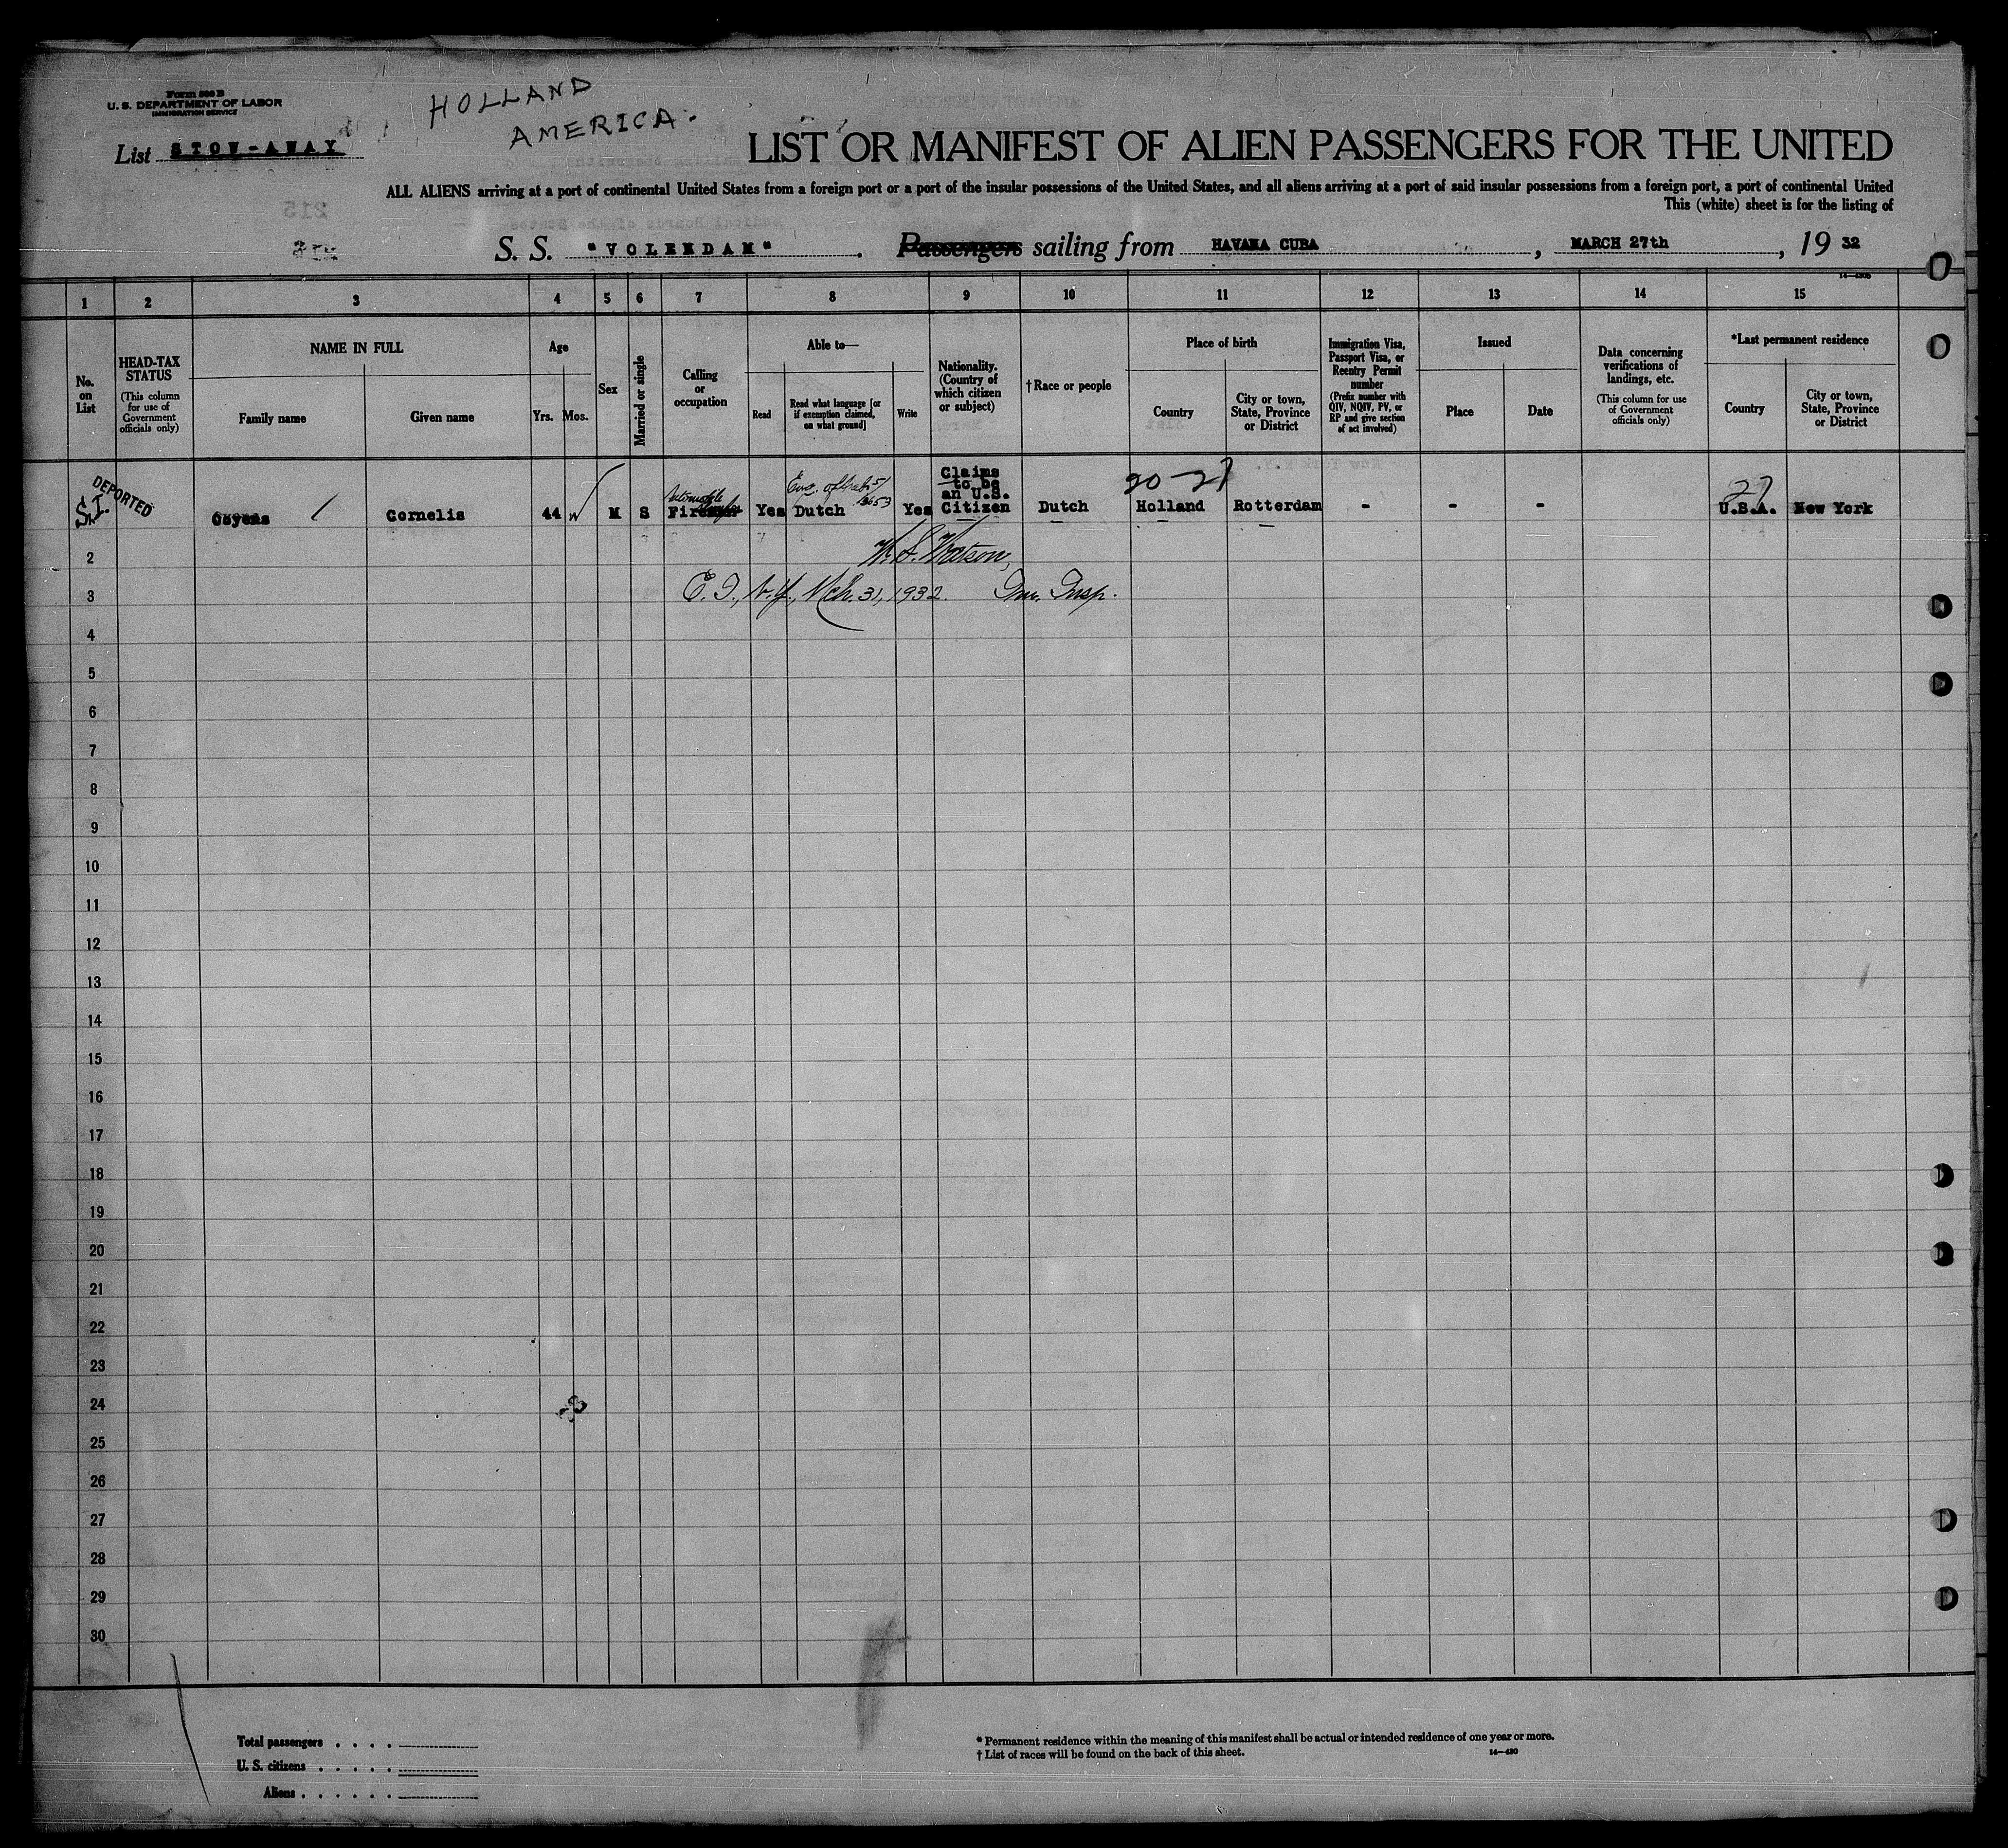 Form 500 B
U. S. DEPARTMENT OF LABOR
IMMIGRATION SERVICE
HOLLAND
AMERICA.
List STOW-AWAY
LIST OR MANIFEST OF ALIEN PASSENGERS FOR THE UNITED
ALL ALIENS arriving at a port of continental United States from a foreign port or a port of the insular possessions of the United States, and all aliens arriving at a port of said insular possessions from a foreign port, a port of continental United
This (white) sheet is for the listing of
215
S. S. "VOLENDAM". Passengers sailing from HAVANA CUBA, MARCH 27th, 19 32
1 2 3 4 5 6 7 8 9 10 11 12 13 14 15
No. on List
HEAD-TAX STATUS
(This column for use of Government officials only)
NAME IN FULL
Family name
Given name
Age
Yrs. Mos.
Sex
Married or single
Calling or occupation
Able to—
Read
Read what language [or if exemption claimed, on what ground]
Write
Nationality. (Country of which citizen or subject)
†Race or people
Place of birth
Country
City or town, State, Province or District
Immigration Visa, Passport Visa, or Reentry Permit number
(Prefix number with QIV, NQIV, PV, or RP and give section of act involved)
Issued
Place
Date
Data concerning verifications of landings, etc.
(This column for use of Government officials only)
*Last permanent residence
Country
City or town, State, Province or District
DEPORTED
S.I.
Cornelis 44 M S Yes Dutch Yes
Claims to be an U.S. Citizen
Dutch
20-27
Holland Rotterdam - - -
27
U.S.A. New York
2
W. S. Watson,
3
E. I., N.Y., Mch. 31, 1932. Imm. Insp.
4
5
6
7
8
9
10
11
12
13
14
15
16
17
18
19
20
21
22
23
24
25
26
27
28
29
30
Total passengers . . . .
U. S. citizens . . . . .
Aliens . . . . . .
* Permanent residence within the meaning of this manifest shall be actual or intended residence of one year or more.
† List of races will be found on the back of this sheet.
14—430